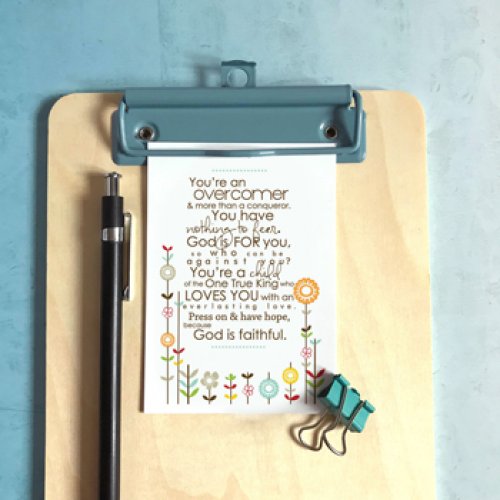 You're an
overcomer
& more than a conqueror.
You have
nothing to fear.
God is FOR you,
so who can be
against you?
You're a child
of the One True King who
LOVES YOU with an
everlasting love.
Press on & have hope,
because
God is faithful.